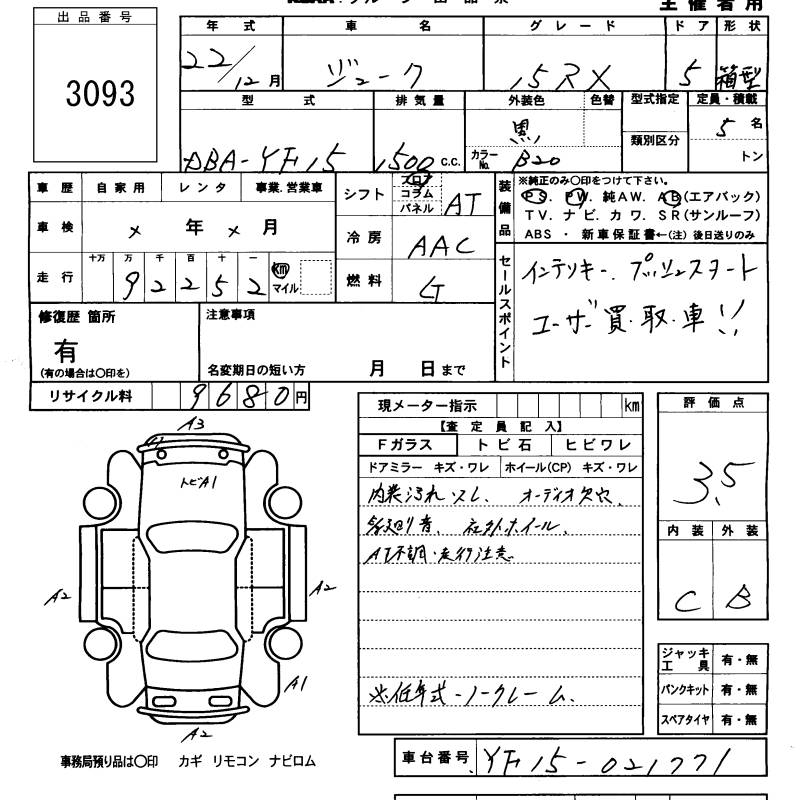 出品番号
3093
主催者用
年式 車名 グレード ドア 形状
22/12月 ジューク 15RX 5 箱型
型式 排気量 外装色 色替 型式指定 定員・積載
黒 類別区分 5名
DBA-YF15 1500 c.c. カラーNo. B20 トン
車歴 自家用 レンタ 事業.営業車
シフト フロア コラム パネル AT
装備品 ※純正のみ〇印をつけて下さい。
PS. PW. 純AW. AB(エアバック)
TV. ナビ. カワ. SR(サンルーフ)
ABS ・ 新車保証書←(注) 後日送りのみ
車検 × 年 × 月
冷房 AAC
走行 十万 万 千 百 十 一
92252 km マイル
燃料 G
セールスポイント インテリキー. プッシュスタート
ユーザー買.取.車!!
修復歴 箇所
有
(有の場合は〇印を)
注意事項
名変期日の短い方 月 日まで
リサイクル料 9680円
現メーター指示 km
【査定員記入】
Fガラス トビ石 ヒビワレ
ドアミラー キズ・ワレ ホイール(CP) キズ・ワレ
内装汚れ.スレ. オーディオ欠穴.
社外ホイール.
AT不調・走行注意
※低年式・ノークレーム.
評価点
3.5
内装 外装
C B
A3
トビA1
A2
A2
A1
A2
ジャッキ工具 有・無
パンクキット 有・無
スペアタイヤ 有・無
事務局預り品は〇印 カギ リモコン ナビロム
車台番号 YF15-021771